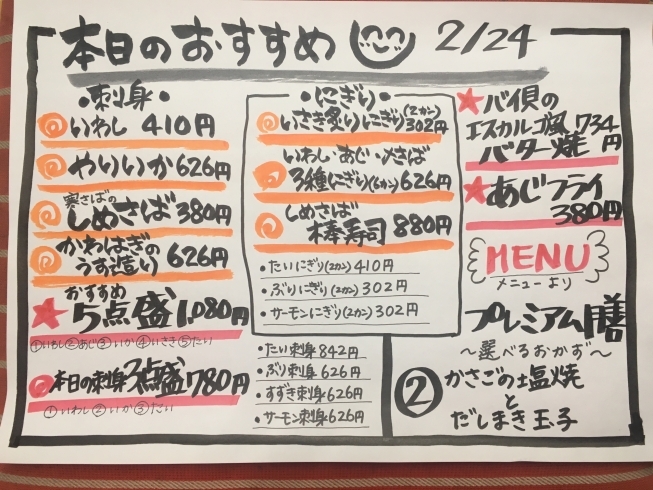 本日のおすすめ 2/24
・刺身・
いわし 410円
やりいか 626円
寒さばの
しめさば 380円
かわはぎの
うす造り 626円
おすすめ
5点盛 1,080円
①いわし②あじ③いか④いさき⑤たい
本日の刺身3点盛 780円
①いわし②いか③たい
・にぎり・
いさき炙りにぎり(2カン)302円
いわし・あじ・〆さば
3種にぎり(6カン)626円
しめさば
棒寿司 880円
・たいにぎり(2カン)410円
・ぶりにぎり(2カン)302円
・サーモンにぎり(2カン)302円
・たい刺身842円
・ぶり刺身626円
・すずき刺身626円
・サーモン刺身626円
★バイ貝の
エスカルゴ風
バター焼 734円
★あじフライ
380円
MENU
メニューより
プレミアム膳
〜選べるおかず〜
② かさごの塩焼
と
だしまき玉子